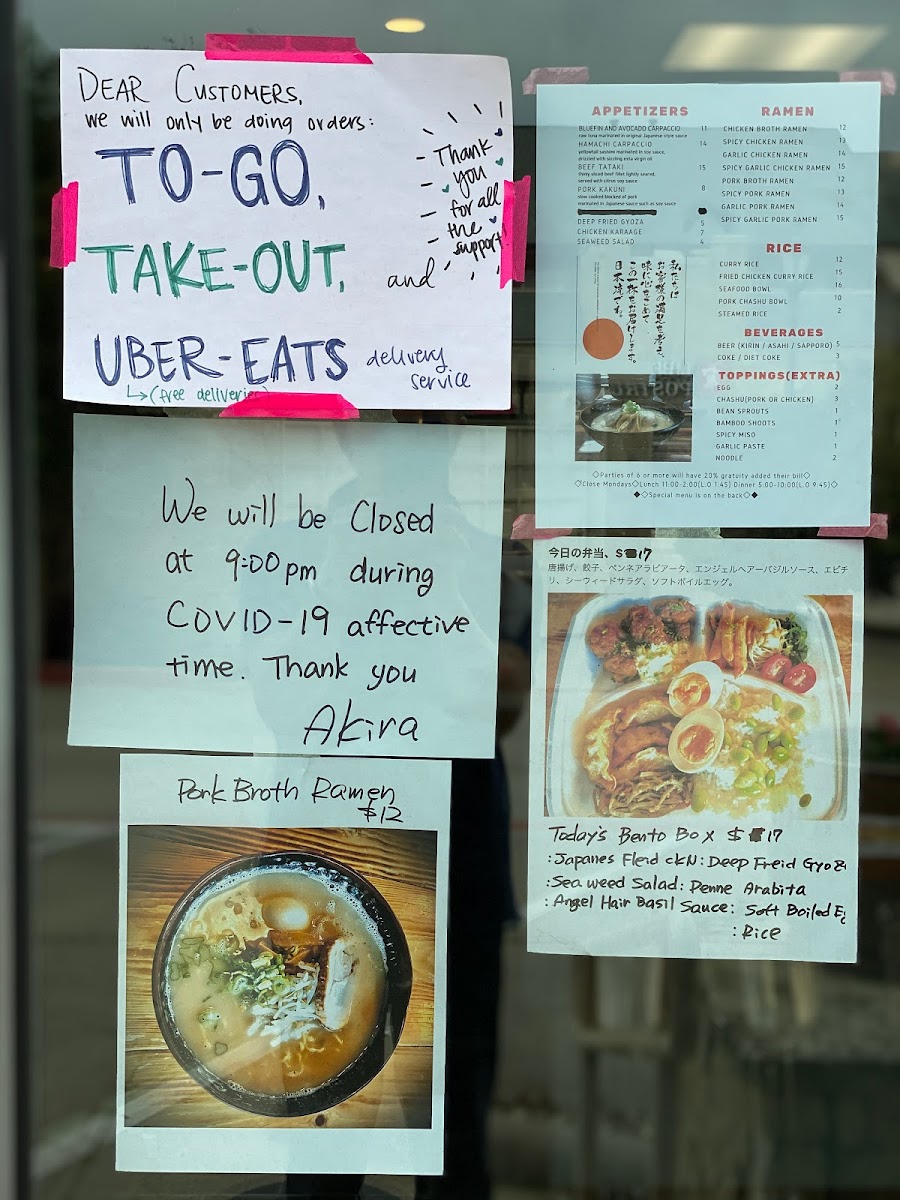 DEAR CUSTOMERS,
we will only be doing orders:
TO-GO,
TAKE-OUT, and
UBER-EATS delivery
service
↳(free deliveries)
Thank
you
for all
the
support!
We will be Closed
at 9:00pm during
COVID-19 affective
time. Thank you
Akira
Pork Broth Ramen
$12
APPETIZERS
BLUEFIN AND AVOCADO CARPACCIO 11
raw tuna marinated in original Japanese style sauce
HAMACHI CARPACCIO 14
yellowtail sashimi marinated in soy sauce,
drizzled with sizzling extra virgin oil
BEEF TATAKI 15
thinly sliced beef fillet lightly seared,
served with citron soy sauce
PORK KAKUNI 8
slow cooked blocked of pork
marinated in Japanese sauce such as soy sauce
DEEP FRIED GYOZA 5
CHICKEN KARAAGE 7
SEAWEED SALAD 4
私たちは
お客様の満足を考え、
味に心をこめて
この一杯をお届けします。
日本流です。
RAMEN
CHICKEN BROTH RAMEN 12
SPICY CHICKEN RAMEN 13
GARLIC CHICKEN RAMEN 14
SPICY GARLIC CHICKEN RAMEN 15
PORK BROTH RAMEN 12
SPICY PORK RAMEN 13
GARLIC PORK RAMEN 14
SPICY GARLIC PORK RAMEN 15
RICE
CURRY RICE 12
FRIED CHICKEN CURRY RICE 15
SEAFOOD BOWL 16
PORK CHASHU BOWL 10
STEAMED RICE 2
BEVERAGES
BEER (KIRIN / ASAHI / SAPPORO) 5
COKE / DIET COKE 3
TOPPINGS(EXTRA)
EGG 2
CHASHU(PORK OR CHICKEN) 3
BEAN SPROUTS 1
BAMBOO SHOOTS 1
SPICY MISO 1
GARLIC PASTE 1
NOODLE 2
◇Parties of 6 or more will have 20% gratuity added their bill◇
◇Close Mondays◇Lunch 11:00-2:00(L.O 1:45) Dinner 5:00-10:00(L.O 9:45)◇
◆◇Special menu is on the back◇◆
今日の弁当、$17
唐揚げ、餃子、ペンネアラビアータ、エンジェルヘアーバジルソース、エビチ
リ、シーウィードサラダ、ソフトボイルエッグ。
Today's Bento Box $17
:Japanes Fleid ckN:Deep Freid Gyoza
:Sea weed Salad: Penne Arabita
:Angel Hair Basil Sauce: Soft Boiled Eg
:Rice